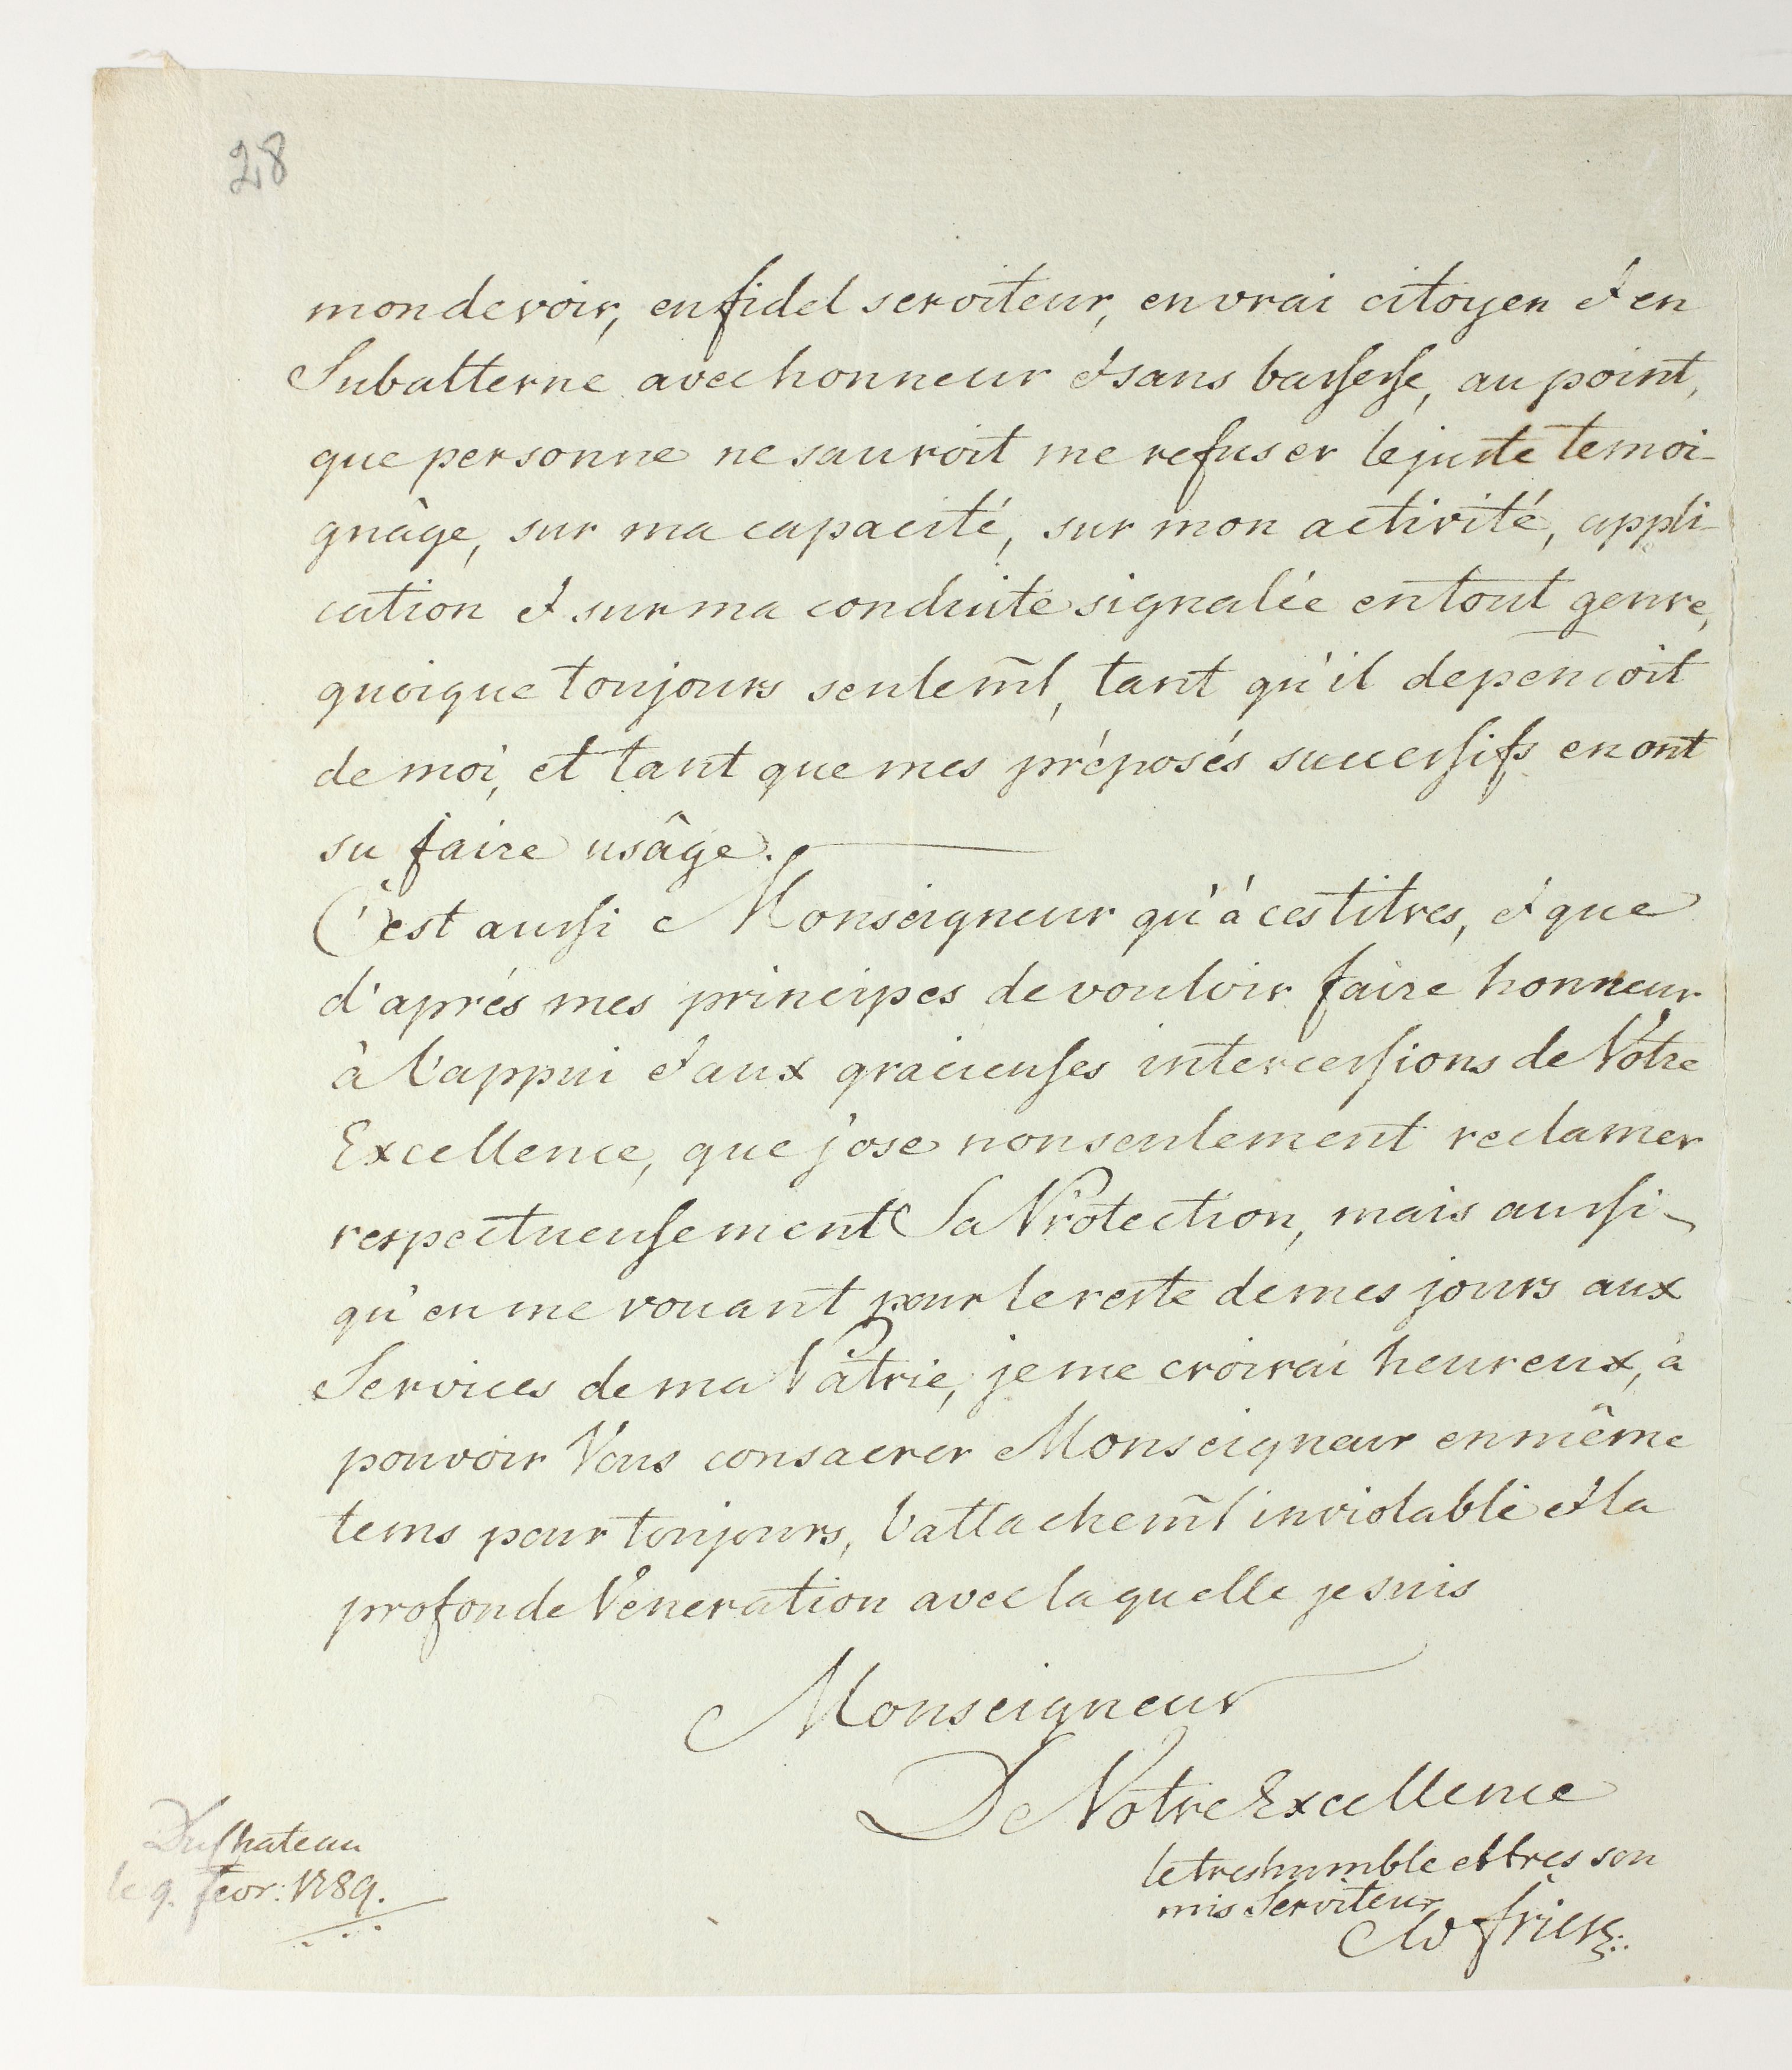 28
mon devoir, en fidel serviteur, en vrai citoyen et en
Subalterne avec honneur et sans bassesse, au point,
que personne ne sauroit me refuser le juste temoi-
gnâge, sur ma capacité, sur mon activité, appli-
cation et sur ma conduite signalée en tout genre,
quoique toujours seulem̃t, tant qu'il depencoit
de moi, et tant que mes préposés successifs en ont
su faire usâge.
C'est aussi Monseigneur qu'à ces titres, et que
d'aprés mes principes de vouloir faire honneur
à l'appui et aux gracieuses intercessions de Votre
Excellence, que j'ose non seulement reclamer
respectueusement Sa Protection, mais aussi
qu'en me vouant pour le reste de mes jours aux
Services de ma Pâtrie, je me croirai heureux, à
pouvoir Vous consacrer Monseigneur en même
tems pour toujours, l'attachem̃t inviolable et la
profonde Veneration avec la quelle je suis
Monseigneur
De Votre Excellence
le tres humble et très sou
mis Serviteur
Du Chateau
le 9. fevr: 1789.